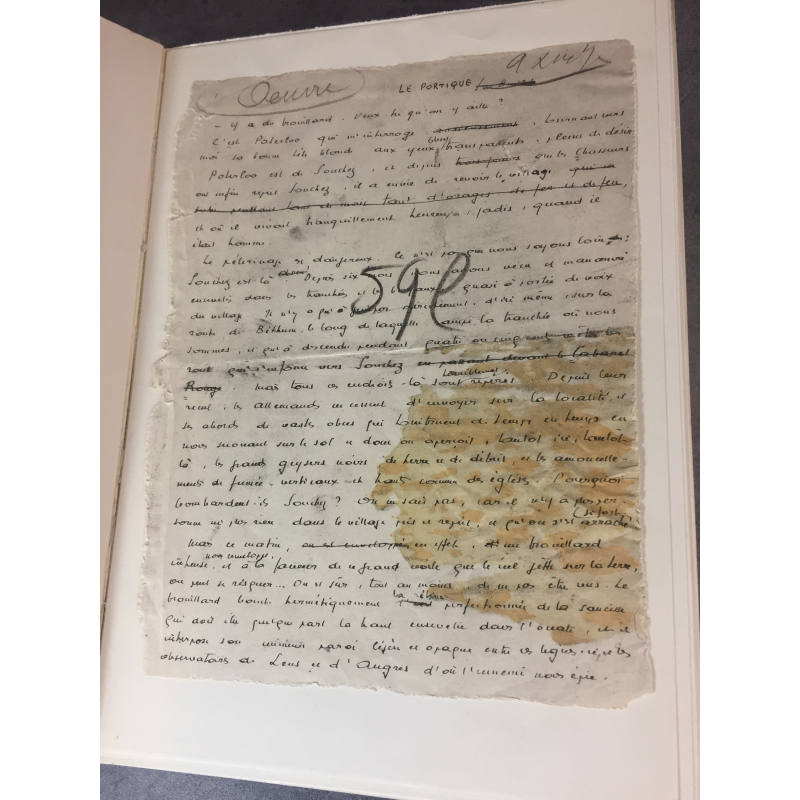 Oeuvre
LE PORTIQUE
- Y a du brouillard. Veux-tu qu'on y aille ?
C'est Poterloo qui m'interroge, tournant vers
moi sa bonne tête blonde aux yeux bleus transparents, pleins de désir
Poterloo est de Souchez, et depuis que les Chasseurs
ont enfin repris Souchez, il a envie de revoir le village
tant de mois tant d'orages de fer et de feu,
et où il vivait tranquillement heureux, jadis, quand il
était homme.
Le pèlerinage est dangereux. Ce n'est pas que nous soyons loin :
Souchez est là. Depuis six mois nous avons vécu et manœuvré
dans les tranchées et les boyaux, quasi à portée de voix
du village. Il n'y a qu'à directement, d'ici même, sur la
route de Béthune, le long de laquelle rampe la tranchée où nous
sommes, et qu'à descendre pendant quatre ou cinq cents mètres la
vers Souchez en passant devant le Cabaret
Rouge. Mais tous ces endroits-là sont terriblement repérés. Depuis leur
recul, les allemands ne cessent d'envoyer sur la localité et
ses abords de vastes obus qui tonitruent de temps en temps en
nous secouant sur le sol et dont on aperçoit, tantôt ici, tantôt
là, les grands geysers noirs de terre et de débris, et les amoncelle-
ments de fumée verticaux et hauts comme des églises. Pourquoi
bombardent-ils Souchez ? On ne sait pas, car il n'y a plus per-
sonne ni plus rien dans le village pris et repris, et qu'on s'est si fort arraché
Mais ce matin, en effet, un brouillard
intense nous enveloppe, et à la faveur de ce grand voile que le ciel jette sur la terre,
on peut se risquer... On est sûr, tout au moins, de ne pas être vus. Le
brouillard bouche hermétiquement la rétine perfectionnée de la saucisse
qui doit être quelque part là-haut ensevelie dans l'ouate, et il
interpose son immense paroi légère et opaque entre nos lignes et les
observatoires de Lens et d'Angres d'où l'ennemi nous épie.
590